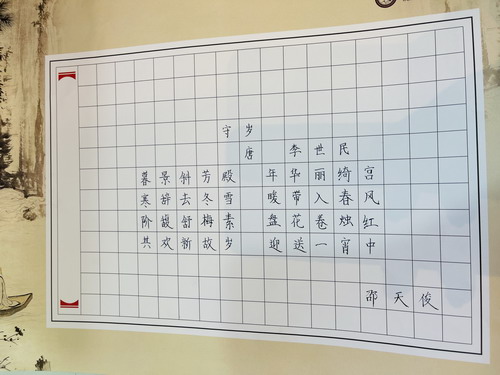 守岁
唐 李世民
暮景斜芳殿 年华丽绮宫
寒辞去冬雪 暖带入春风
阶馥舒梅素 盘花卷烛红
共欢新故岁 迎送一宵中
邵天俊